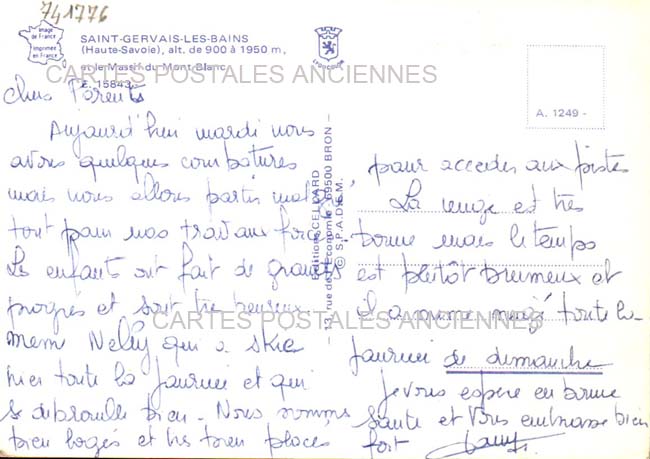 741776
Image de France
Imprimée en France
SAINT-GERVAIS-LES-BAINS
(Haute-Savoie), alt. de 900 à 1950 m,
et le Massif du Mont-Blanc
E. 15843
LYONCOLOR
A. 1249 -
CARTES POSTALES ANCIENNES
Editions CELLARD
- 13, rue de l'Economie 69500 BRON -
© S.P.A.D.E.M.
chers Parents
Aujourd'hui mardi nous
avons quelques courbatures
mais nous allons partir malgré
tout pour nos travaux forcés.
Les enfants ont fait de grands
progrès et sont très heureux
CARTES POSTALES ANCIENNES
meme Nelly qui a skie
hier toute la journée et qui
se debrouille bien - Nous sommes
bien logés et très bien placés
pour acceder aux pistes
La neige est très
bonne mais le temps
est plutôt brumeux et
il a meme neigé toute la
journée de dimanche
Je vous espère en bonne
sante et Vous embrasse bien
fort